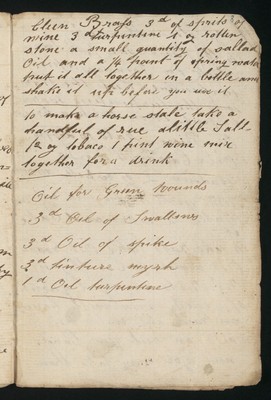 Cleen Brass 3d of sprits of
wine 3d turpentine 1 oz rotten
stone a small quantity of sallad
Oil and a 1/4 paint of spring water
put it all together in a bottle and
shake it before you use it
to make a horse stale take a
handful of rue a little Salt
1 oz of tobaco 1 pint wine mix
together for a drink
Oil for Green Wounds
3d Oil of Swallows
3d Oil of spike
3d tinture myrh
1d Oil turpentine